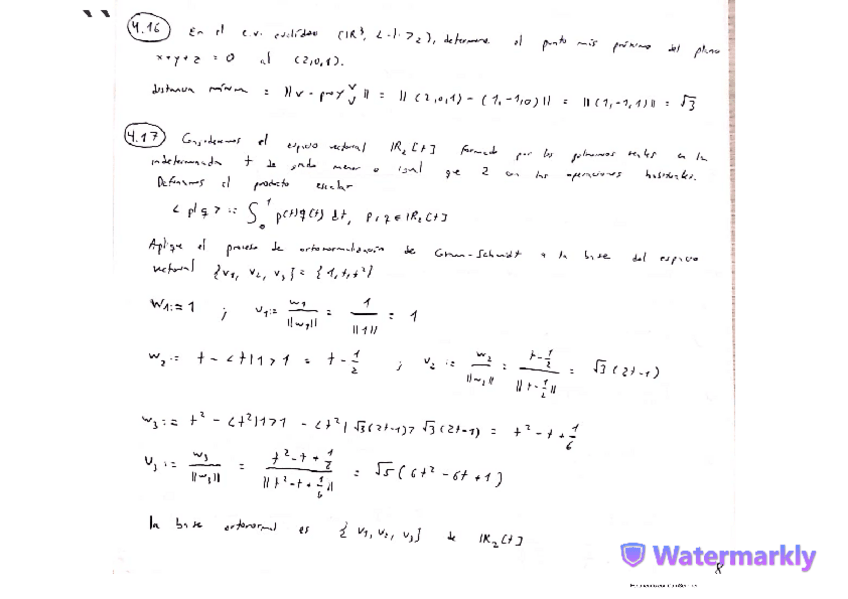 4.16 En el e.v. euclídeo (IR³, <·|·>₂), determine el punto más próximo del plano
x+y+z = 0 al (2,0,1).
distancia mínima = ||v - proy_U^V|| = ||(2,0,1) - (1,-1,0)|| = ||(1,-1,1)|| = √3
4.17 Consideremos el espacio vectorial IR₂[t] formado por los polinomios reales en la
indeterminada t de grado menor o igual que 2 con las operaciones habituales.
Definimos el producto escalar
<p|q> := ∫₀¹ p(t)q(t) dt, p,q ∈ IR₂[t]
Aplique el proceso de ortonormalización de Gram-Schmidt a la base del espacio
vectorial {v₁, v₂, v₃} = {1,t,t²}
W₁:= 1 ; v₁:= w₁/||w₁|| = 1/||1|| = 1
w₂:= t - <t|1>1 = t - 1/2 ; v₂ := w₂/||w₂|| = (t-1/2)/||t-1/2|| = √3 (2t-1)
w₃:= t² - <t²|1>1 - <t²|√3(2t-1)>√3(2t-1) = t² - t + 1/6
v₃ := w₃/||w₃|| = (t² - t + 1/2)/||t² - t + 1/6|| = √5 (6t² - 6t + 1)
la base ortonormal es {v₁, v₂, v₃} de IR₂[t]
Watermarkly
8